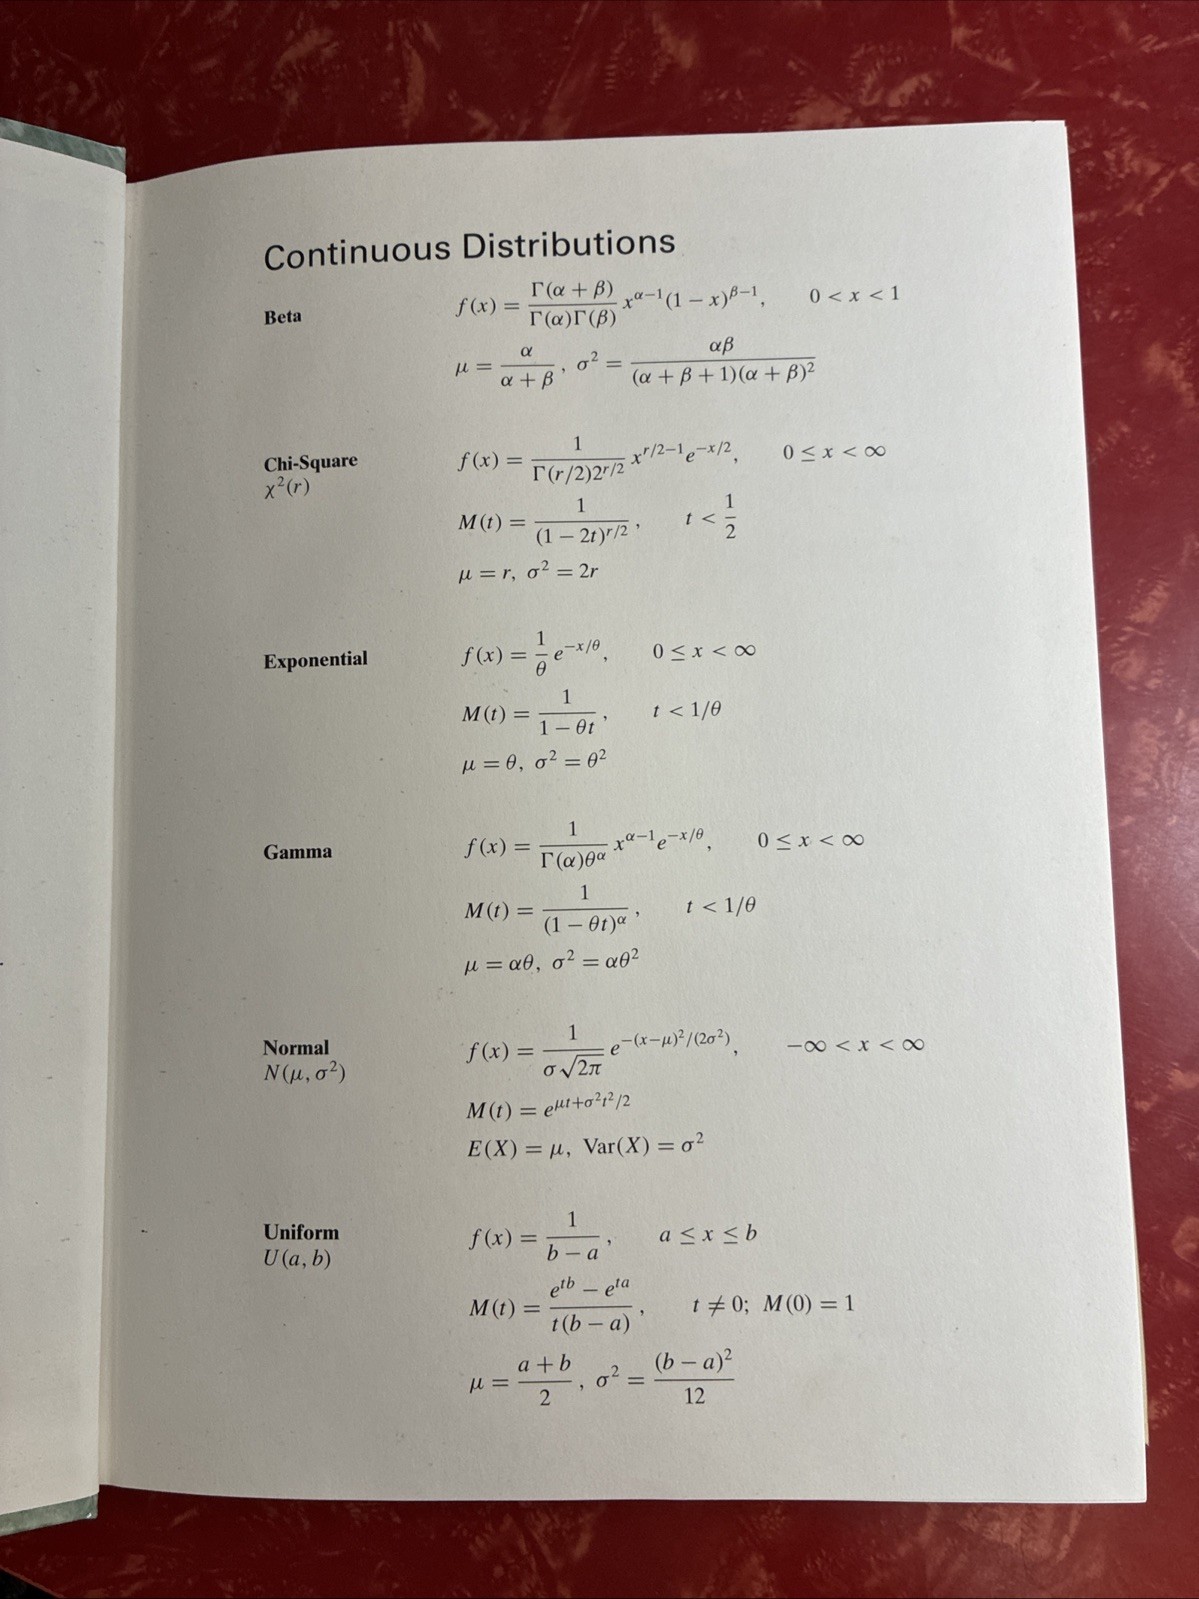 Continuous Distributions
Beta f(x) = \frac{Γ(α + β)}{Γ(α)Γ(β)} x^{α−1}(1 − x)^{β−1}, 0 < x < 1
μ = \frac{α}{α + β}, σ^2 = \frac{αβ}{(α + β + 1)(α + β)^2}
Chi-Square f(x) = \frac{1}{Γ(r/2)2^{r/2}} x^{r/2−1}e^{−x/2}, 0 ≤ x < ∞
χ^2(r)
M(t) = \frac{1}{(1 − 2t)^{r/2}}, t < \frac{1}{2}
μ = r, σ^2 = 2r
Exponential f(x) = \frac{1}{θ} e^{−x/θ}, 0 ≤ x < ∞
M(t) = \frac{1}{1 − θt}, t < 1/θ
μ = θ, σ^2 = θ^2
Gamma f(x) = \frac{1}{Γ(α)θ^α} x^{α−1}e^{−x/θ}, 0 ≤ x < ∞
M(t) = \frac{1}{(1 − θt)^α}, t < 1/θ
μ = αθ, σ^2 = αθ^2
Normal f(x) = \frac{1}{σ\sqrt{2π}} e^{−(x−μ)^2/(2σ^2)}, −∞ < x < ∞
N(μ, σ^2)
M(t) = e^{μt+σ^2t^2/2}
E(X) = μ, Var(X) = σ^2
Uniform f(x) = \frac{1}{b − a}, a ≤ x ≤ b
U(a, b)
M(t) = \frac{e^{tb} − e^{ta}}{t(b − a)}, t ≠ 0; M(0) = 1
μ = \frac{a + b}{2}, σ^2 = \frac{(b − a)^2}{12}